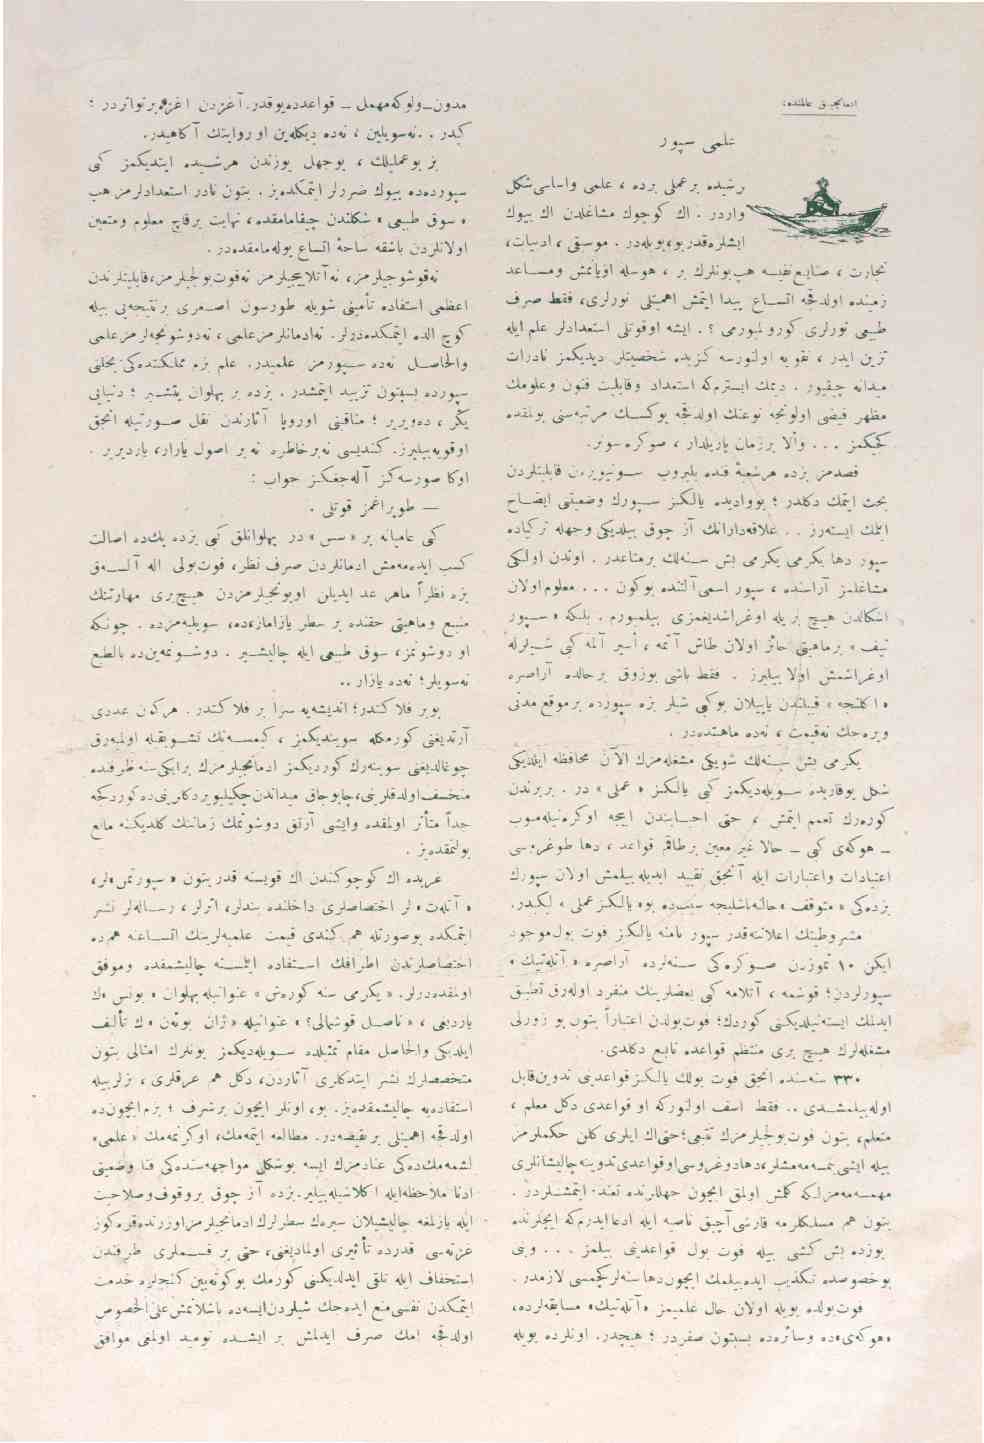 ادمانجیلق عالمنده:
علمی سپور
هر شیده بر عملی برده ، علمی واساسی شکل
واردر . اك كوچوك مشاغلدن اك بیوك
ایشلره قدر بو ، بویله در . موسیقی ، ادبیات ،
تجارت ، صنایع نفیسه هپ بونلرك بر ، هوسله اویانمش ومساعد
زمینده اولدقجه اتساع پیدا ایتمش اهمیتلی نورلری ، فقط صرف
طبیعی نورلری كورولمیورمی ؟ . ایشته اوقوتلی استعدادلر علم ایله
تزین ایدر ، تقویه اولنورسه كزیده شخصیتلر دیدیكمز نادرات
میدانه چیقیور . دیمك ایسترم كه استعداد وقابلیت فنون وعلومك
مظهر فیضی اولونجه نوعنك اولدقجه یوكسك مرتبه سنی بولمقده
كجیكمز ... والا بر زمان پاریلدار ، صوكره سونر .
قصدمز بزده هر شعبهٔ فنده بلیروب سونیویرن قابلیتلردن
بحث ایتمك دكلدر ؛ بو وادیده یالكز سپورك وضعیتنی ایضاح
ایتمك ایسته رز .. علاقه دارانك آز چوق بیلدیكی وجهله تركیاده
سپور دها یكرمی یكرمی بش سنه لك بر متاعدر . اوندن اولكی
مشاغلمز آراسنده ، سپور اسمی آلتنده بوكون ... معلوم اولان
اشكالدن هیچ بریله اوغراشدیغمزی بیلمیورم . بلكه « سپور
تیف » بر ماهیتی حائز اولان طاش آتمه ، آسیر آلمه كبی شیلرله
اوغراشمش اولا بیلیرز . فقط باشی بوزوق بر حالده آراصره
« اكلنجه » قبیلندن یاپیلان بو كبی شیلر بزه سپورده بر موقع مدنی
ویره جك نه قیمت ، نه ده ماهیتده در .
یكرمی بش سنه لك شو یكی مشغله مزك الآن محافظه ایلدیكی
شكل یوقاریده سویله دیكمز كبی یالكز « عملی » در . بربرندن
كوره رك تعمم ایتمش ، حتی اجنبیدن اییجه اوكره نیله میوب
ـ هوكه ی كبی ـ حالا غیر معین بر طاقم قواعد ، دها طوغروسی
اعتیادات واعتبارات ایله آنجق تقیید ایدیله بیلمش اولان سپورك
بزده كی « متوقف » حالنه باشلیجه سبب ده بو « یالكز عملی » لیكیدر.
مشروطیتك اعلاننه قدر سپور نامنه یالكز فوت بول موجود
ایكن ١٠ تموزدن صوكره كی سنه لرده آراصره « آتله تیك »
سپورلردن ؛ قوشمه ، آتلامه كبی بعضلرینك منفرد اوله رق تطبیق
ایدلمك ایسته نیلدیكنی كوردك ؛ فوت بولدن اعتباراً بتون بو زورلی
مشغله لرك هیچ بری منتظم قواعده تابع دكلدی.
٣٣٠ سنه سنده انجق فوت بولك یالكز قواعدینی تدوین قابل
اوله بیلمشدی .. فقط اسف اولنوركه او قواعدی دكل معلم ،
متعلم ، بتون فوت بولجیلرمزك تتبعی ؛ حتی اك ایلری كلن حكملرمز
بیله ایشی بیتمه مشلر ، دها دوغروسی او قواعدی تدوینه چالیشانلری
مهمسه مه مزلكه كلمش اولمق ایچون جهللرنده تعند ایتمشلردر .
بتون هم مسلكلرمه قارشی آچیق ناصیه ایله ادعا ایدرم كه ایچلرنده
یوزده بش كشی بیله فوت بول قواعدینی بیلمز ... وبنی
بو خصوصده تكذیب ایده بیلمك ایچون دها سنه لر كچمسی لازمدر .
فوت بولده بویله اولان حال علمیمز « آتله تیك » مسابقه لرده ،
« هوكه ی » ده وسائره ده بسبتون صفردر ؛ هیچدر. اونلرده بویله
مدون ـ ولو كه مهمل ـ قواعدده یوقدر. آغزدن اغزه بر تواتردر ؛
كیدر .. نه سویلین ، نه ده دیكله ین او روایتك آ كاهیدر.
بز بو عملیلك ، بو جهل یوزندن هر شیده ایتدیكمز كبی
سپورده ده بیوك ضررلر ایتمكده یز . بتون نادر استعدادلرمز هپ
« سوق طبیعی » شكلندن چیقامامقده ، نهایت بر قاچ معلوم ومتعین
اولانلردن باشقه ساحهٔ اتساع بوله مامقده در .
نه قوشوجیلرمز ، نه آتلاییجیلرمز نه فوت بولجیلرمز ، قابلیتلرندن
اعظمی استفاده تأمینی شویله طورسون اصغری بر نتیجه یی بیله
كوچ الده ایتمكده درلر. نه ادمانلرمز علمی ، نه دوشونجه لرمز علمی
والحاصل نه ده سپورمز علمیدر. علم بزم مملكتده كی بخلنی
سپورده بسبتون تزیید ایتمشدر . بزده بر پهلوان یتشیر ؛ دنیایی
یكر ، ده ویریر ؛ مناقبنی اوروپا آثارندن نقل صورتیله انجق
اوقویه بیلیرز. كندیسی نه بر خاطره نه بر اصول یازار ، یازدیریر .
اوكا صورسه كز آله جغكز جواب :
— طوپراغمز قوتلی .
كبی عامیانه بر « سس » در پهلوانلق كبی بزده پك ده اصالت
كسب ایده مه مش ادمانلردن صرف نظر ، فوت بولی اله آلسه ق
بزه نظراً ماهر عد ایدیلن اویونجیلرمزدن هیچ بری مهارتنك
منبع وماهیتی حقنده بر سطر یازاماز ، ده ، سویلیه مزده . چونكه
او دوشونمز ، سوق طبیعی ایله چالیشیر . دوشونمه ین ده بالطبع
نه سویلر ؛ نه ده یازار ..
بو بر فلاكتدر ؛ اندیشه یه سزا بر فلاكتدر . هر كون عددی
آرتدیغنی كورمكله سویندیكمز ، كیمسه نك تشویقیله اولمیه رق
چوغالدیغنی سوینه رك كوردیكمز ادمانجیلرمزك بر ایكی سنه ظرفنده
منخسف اولدقلرینی ، چابوجاق میداندن چكیلیویردكلرینی ده كوردكجه
جداً متأثر اولمقده وایشی آرتق دوشونمك زماننك كلدیكنه مانع
بولنمقده یز .
غربده اك كوچوكندن اك قویسنه قدر بتون « سپورتمن » لر ،
« آتله ت » لر اختصاصلری داخلنده بندلر ، اثرلر ، رساله لر نشر
ایتمكده بو صورتله هم كندی قیمت علمیه لرینك اتساعنه هم ده
اختصاصلرندن اطرافك استفاده ایتمسنه چالیشمقده وموفق
اولمقده درلر . « یكرمی سنه كوره ش » عنوانیله پهلوان « پونس » ك
یازدیغی ، « ناصل قوشمالی ؟ » عنوانیله « ژان بوئن » ك تألیف
ایلدیكی والحاصل مقام تمثیلده سویله دیكمز بونلرك امثالی بتون
متخصصلرك نشر ایتدكلری آثاردن ، دكل هم عرقلری ، بزلر بیله
استفاده یه چالیشمقده یز. بو ، اونلر ایچون بر شرف ؛ بزم ایچون ده
اولدقجه اهمیتلی بر نقیصه در. مطالعه ایتمه مك ، اوكرنمه مك « علمی »
لشمه مك ده كی عنادمزك ایسه بو شكل مواجهه سنده كی فنا وضعیتی
ادنا ملاحظه ایله اكلاشیله بیلیر. بزده آز چوق بر وقوف وصلاحیت
ایله یازلمغه چالیشیلان سیره ك سطرلرك ادمانجیلرمز اوزرنده قره كوز
غزته سی قدرده تأثیری اولمادیغی ، حتی بر قسملری طرفندن
استخفاف ایله تلقی ایدلدیكنی كورمك بو كوته یین كنجلره خدمت
ایتمكدن نفسی منع ایده جك شیلردن ایسه ده باشلانمش علی الخصوص
اولدقجه امك صرف ایدلمش بر ایشده نومید اولمغی موافق